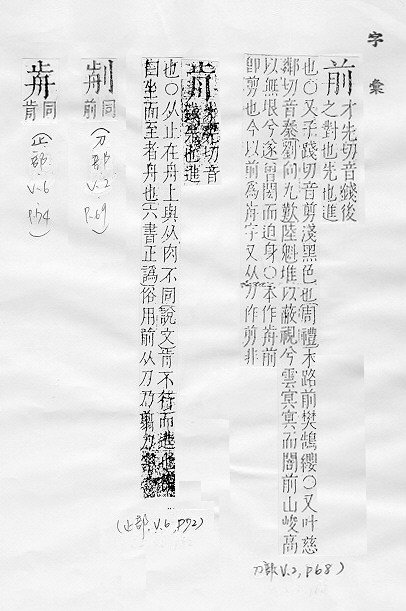 字彙
前 才先切音錢後
之對也先也進
也〇又子踐切音剪淺黑色也周禮木路前樊鵠纓〇又叶慈
鄰切音秦劉向九歎陸魁堆以蔽視兮雲冥冥而闇前山峻高
以無垠兮遂曾閎而迫身〇本作歬前
卽剪也今以前爲歬字又从刀作剪非
(刀部, V.2, P68)
歬 才先切音
錢先也進
也〇从止在舟上與从肉不同說文歬不行而進也
自坐而至者舟也六書正譌俗用前从刀乃翦
(止部, V.6, P72)
同
前
(刀部 V.2 P.69)
歬 同
肯
(止部, V.6 P.74)